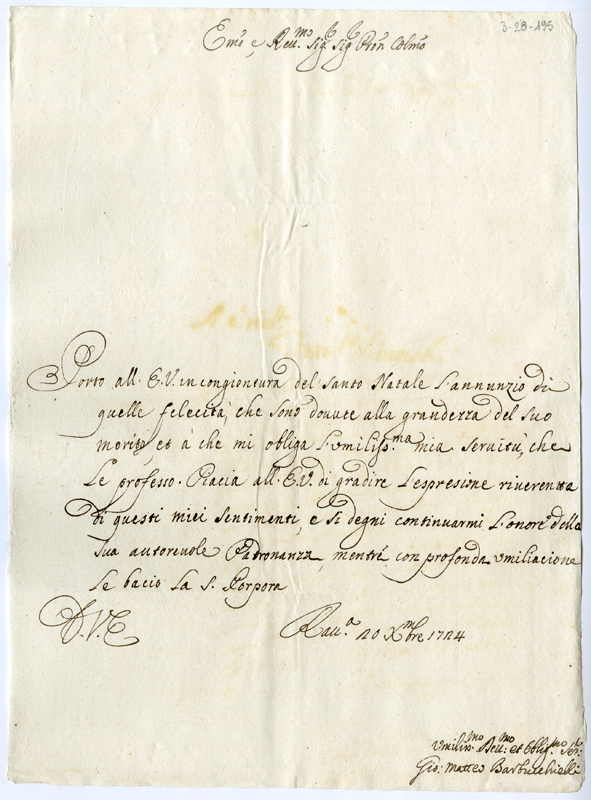 3-28-195
Emo e Reu.mo Sig.r Sig.r Pron Colmo
Porto all. E.V. in congiontura del santo Natale l'annunzio di
quelle felecità, che sono douute alla grandezza del suo
merito, et à che mi obliga l'umiliss.ma mia seruitù, che
le professo. Piacia all. E.V. di gradire l'espresine riuerente
di questi miei sentimenti, e si degni continuarmi l'onore della
sua autoreuole Padronanza, mentrè con profonda umiliacione
le bacio la s. Porpora
D.V.E
Rau.a 20 Xmbre 1724
Umiliss.mo Deu.mo et Oblig.mo Ser.
Gio: Matteo Barbucchielli